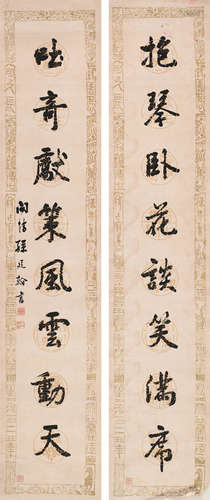 抱琴卧花談笑滿席
吐奇獻策風雲動天
孫廷翰書